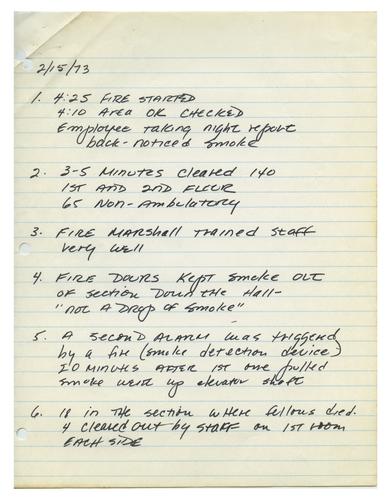 2/15/73
1. 4:25 FIRE STARTED
4:10 AREA OK CHECKED
Employee taking night report
back-noticed smoke
2. 3-5 MINUTES Cleared 140
1ST AND 2ND FLUUR
65 NON-AmbulAtory
3. FIRE MARSHALL TRAINED STAFF
very well
4. FIRE DOORS Kept smoke OUT
OF SECTION DOWN the HALL-
"NOT A DROP OF SMOKE"
5. A SECOND ALARM WAS triggered
by a fire (smoke detection device)
10 MINUTES AFTER 1ST one pulled
smoke went up elevator shaft
6. 18 in THE SECTION WHERE fellows died.
4 cleared out by STAFF ON 1ST room
EACH SIDE